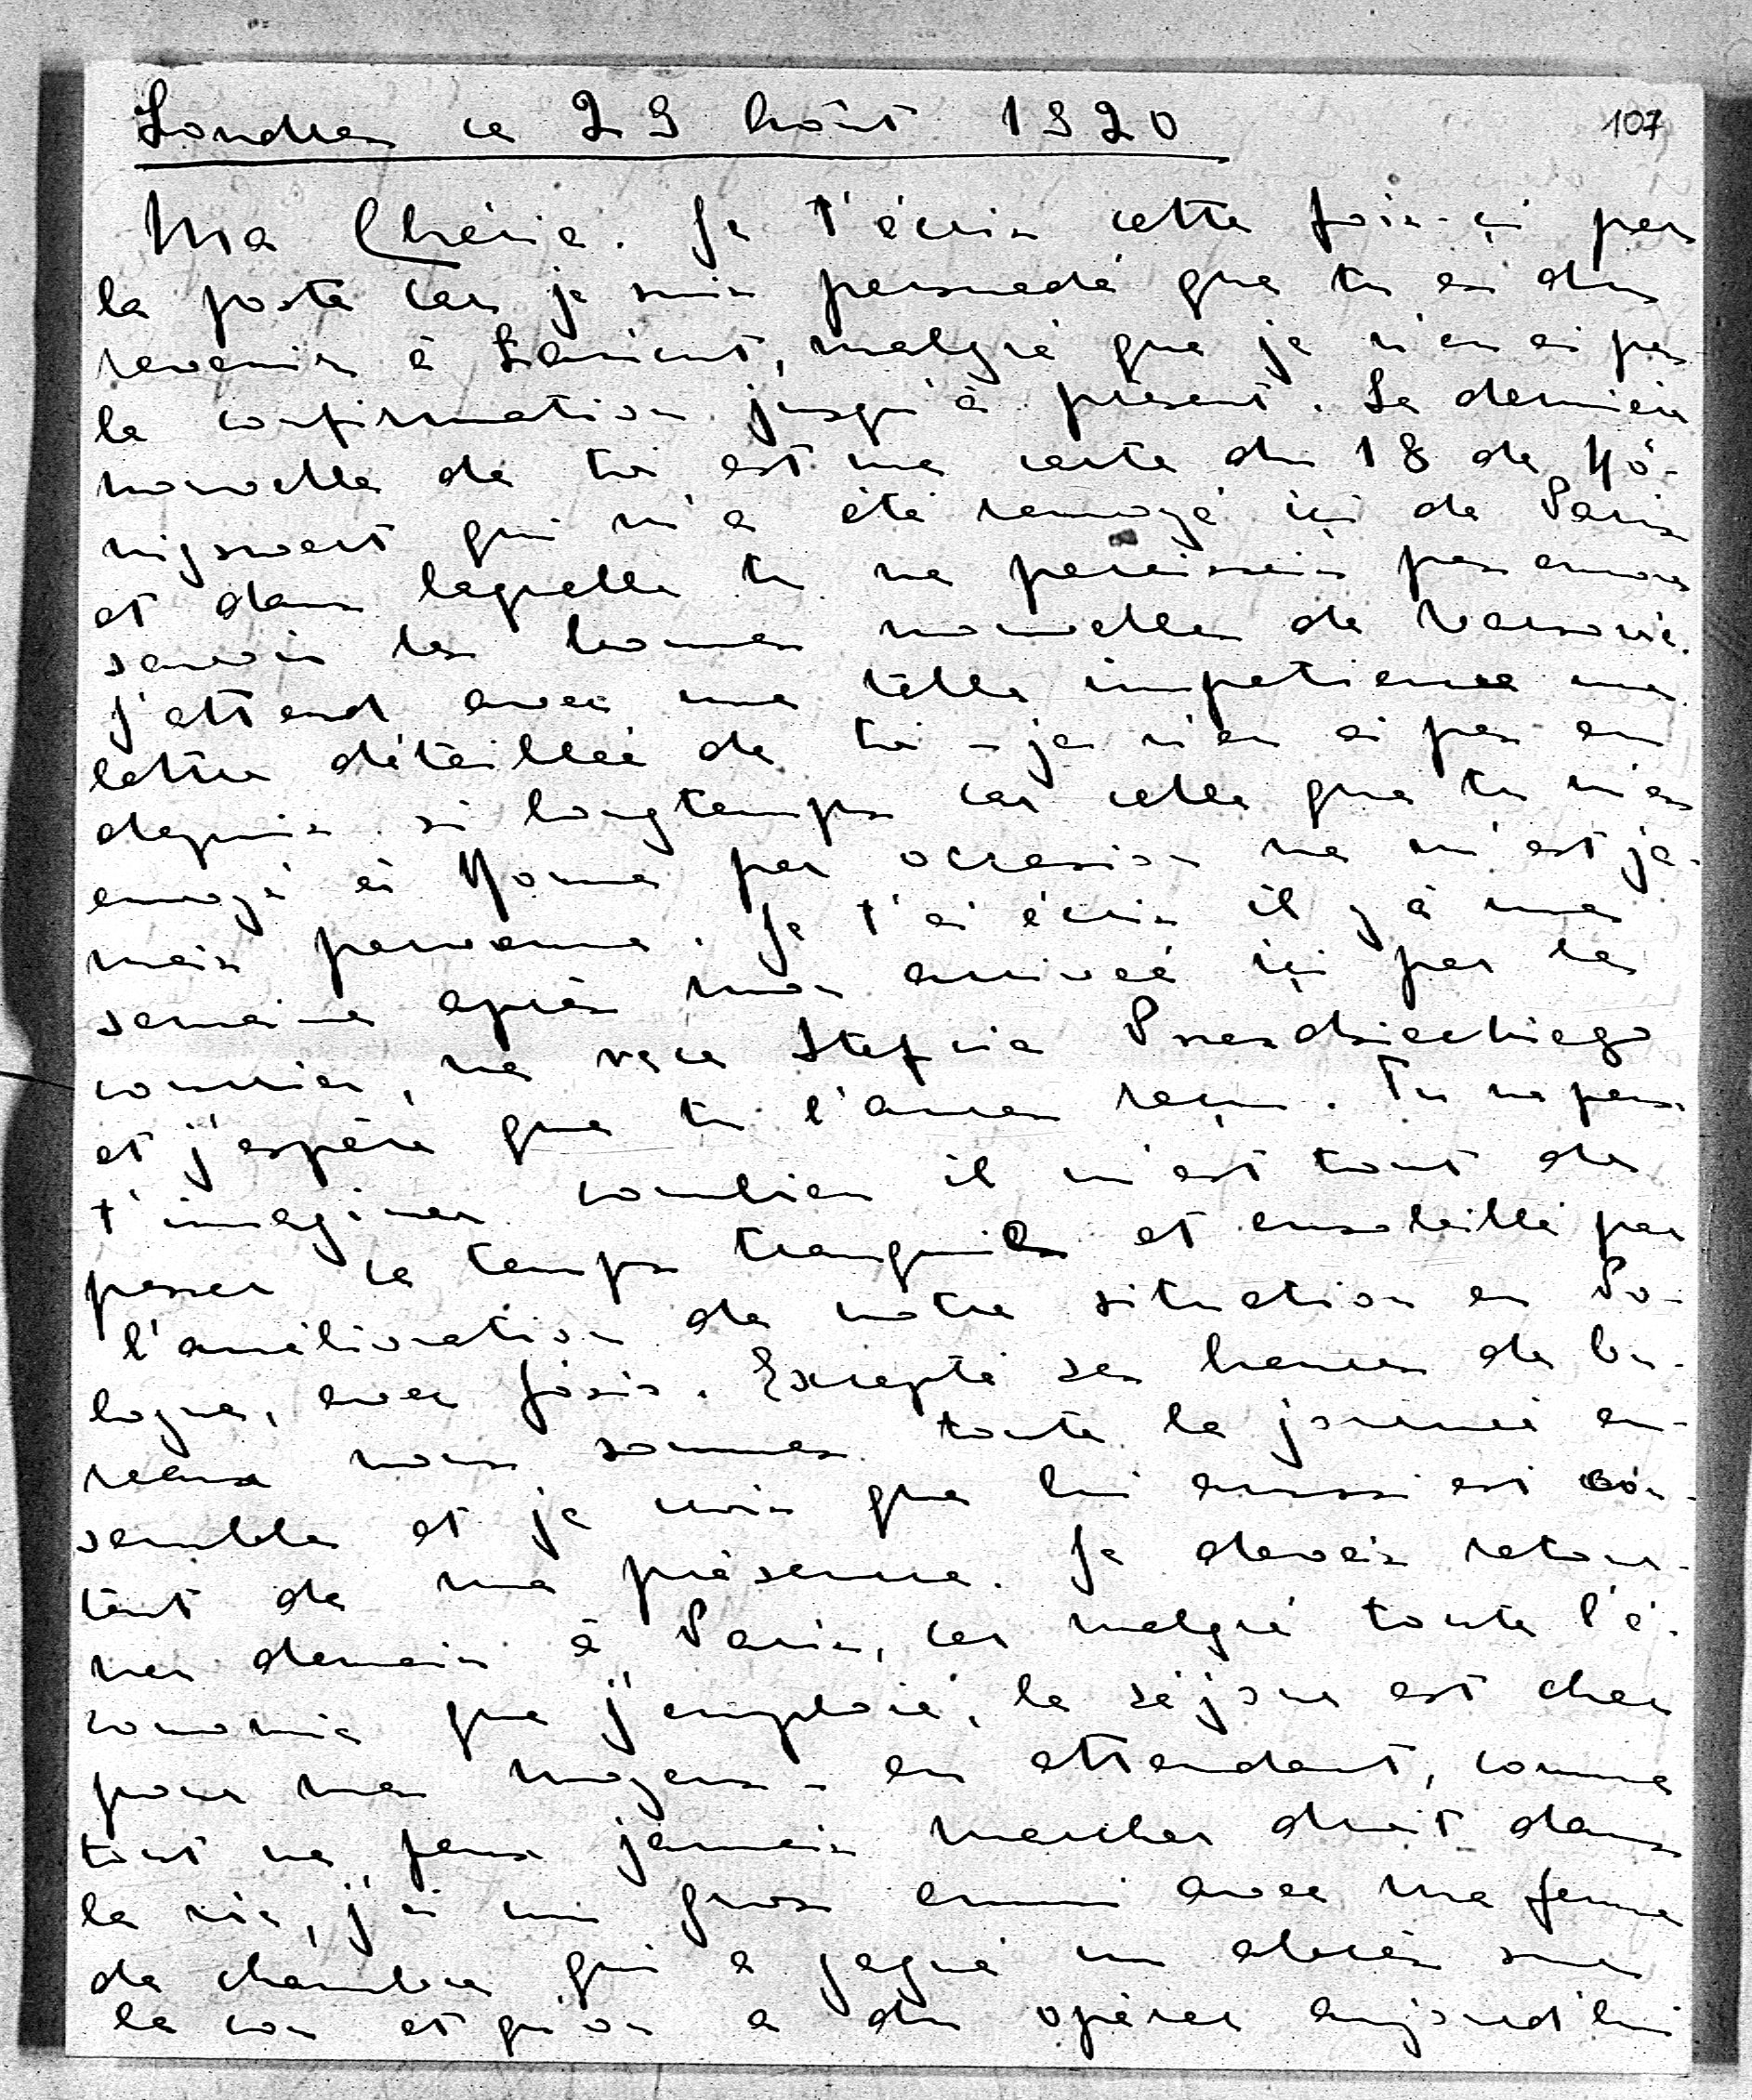 Londres ce 29 Août 1920
107
Ma Chérie. Je t'écris cette fois-çi par
la poste car je suis persuadé que tu as du
revenir à Łańcut, malgré que je n'en ai pas
la confirmation jusqu'à présent. La dernière
nouvelle de toi est une carte du 18 de Kö-
nigswart qui m'a été renvoyé içi de Paris
et dans laquelle tu ne paraissais pas encore
savoir les bonnes nouvelles de Varsovie.
J'attend avec une telle impatience une
lettre détaillée de toi – je n'en ai pas eu
depuis si longtemps car celle que tu m'as
envoyé à par occasion ne m'est ja-
mais parvenue. Je t'ai écris il y à une
semaine après mon arrivée içi par le
courrier, na ręce Stefcia Przezdzieckiego
et j'espère que tu l'auras reçu. Tu ne peux
t'imaginer combien il m'est tout de
passer ce temps tranquile et ensoleillé par
l'amélioration de notre situation en Po-
logne, avec Józio. Excepté ses heures de bu-
reaux nous sommes toute la journée en-
semble et je crois que lui aussi est con-
tent de ma présence. Je devais retour-
ner demain à Paris, car malgré toute l'é-
conomie que j'emploie, le séjour est cher
pour mes moyens – en attendant, comme
tout ne peux jamais marcher droit dans
la vie, j'ai un gros ennui avec ma femme
de chambre qui a gagné un abcès sur
le cou et qu'on a du opérer aujourd'hui